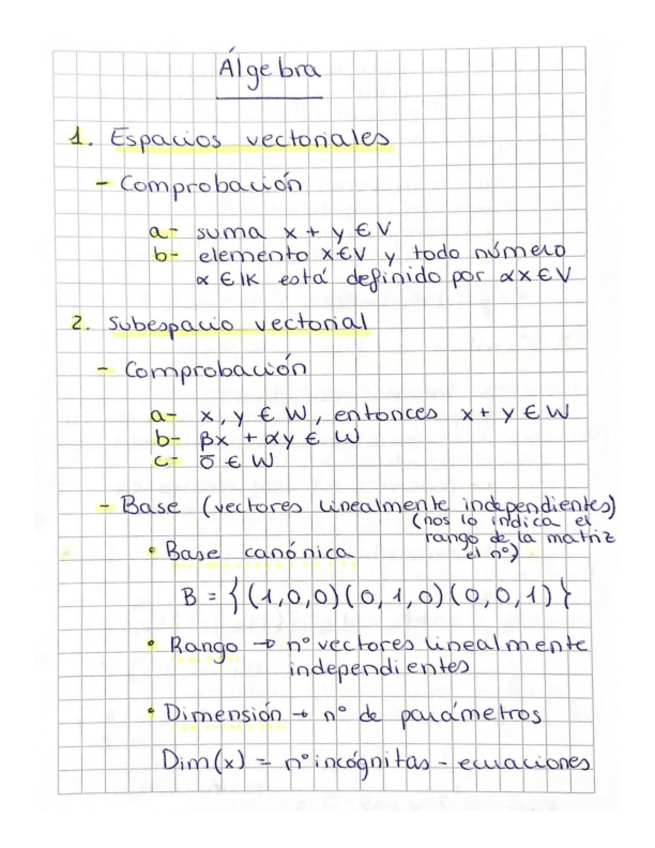 Álgebra
1. Espacios vectoriales
- Comprobación
a- suma x + y ∈ V
b- elemento x ∈ V y todo número
α ∈ IK está definido por αx ∈ V
2. Subespacio vectorial
- Comprobación
a- x, y ∈ W, entonces x + y ∈ W
b- βx + αy ∈ W
c- 0̅ ∈ W
- Base (vectores linealmente independientes)
(nos lo indica el
rango de la matriz
el nº)
• Base canónica
B = {(1,0,0)(0,1,0)(0,0,1)}
• Rango → nº vectores linealmente
independientes
• Dimensión → nº de parámetros
Dim(x) = nº incógnitas - ecuaciones